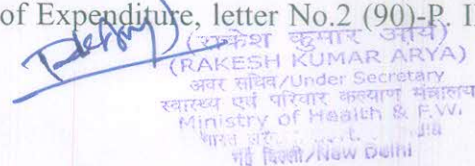 of Expenditure, letter No.2 (90)-P. I
(राकेश कुमार आर्य)
(RAKESH KUMAR ARYA)
अवर सचिव/Under Secretary
स्वास्थ्य एवं परिवार कल्याण मंत्रालय
Ministry of Health & F.W.
भारत
नई दिल्ली/New Delhi